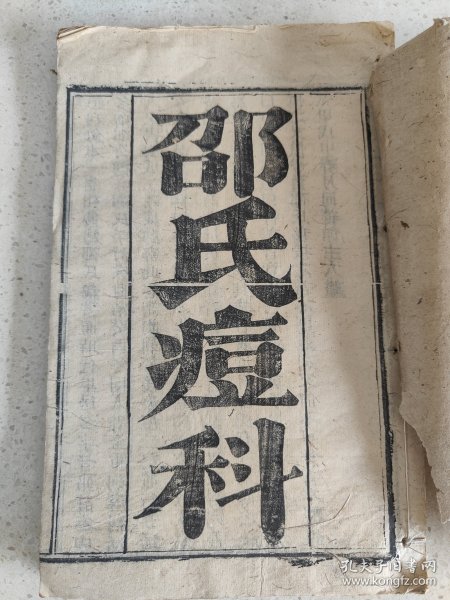 邵氏痘科
孔夫子旧书网
www.kongfz.com